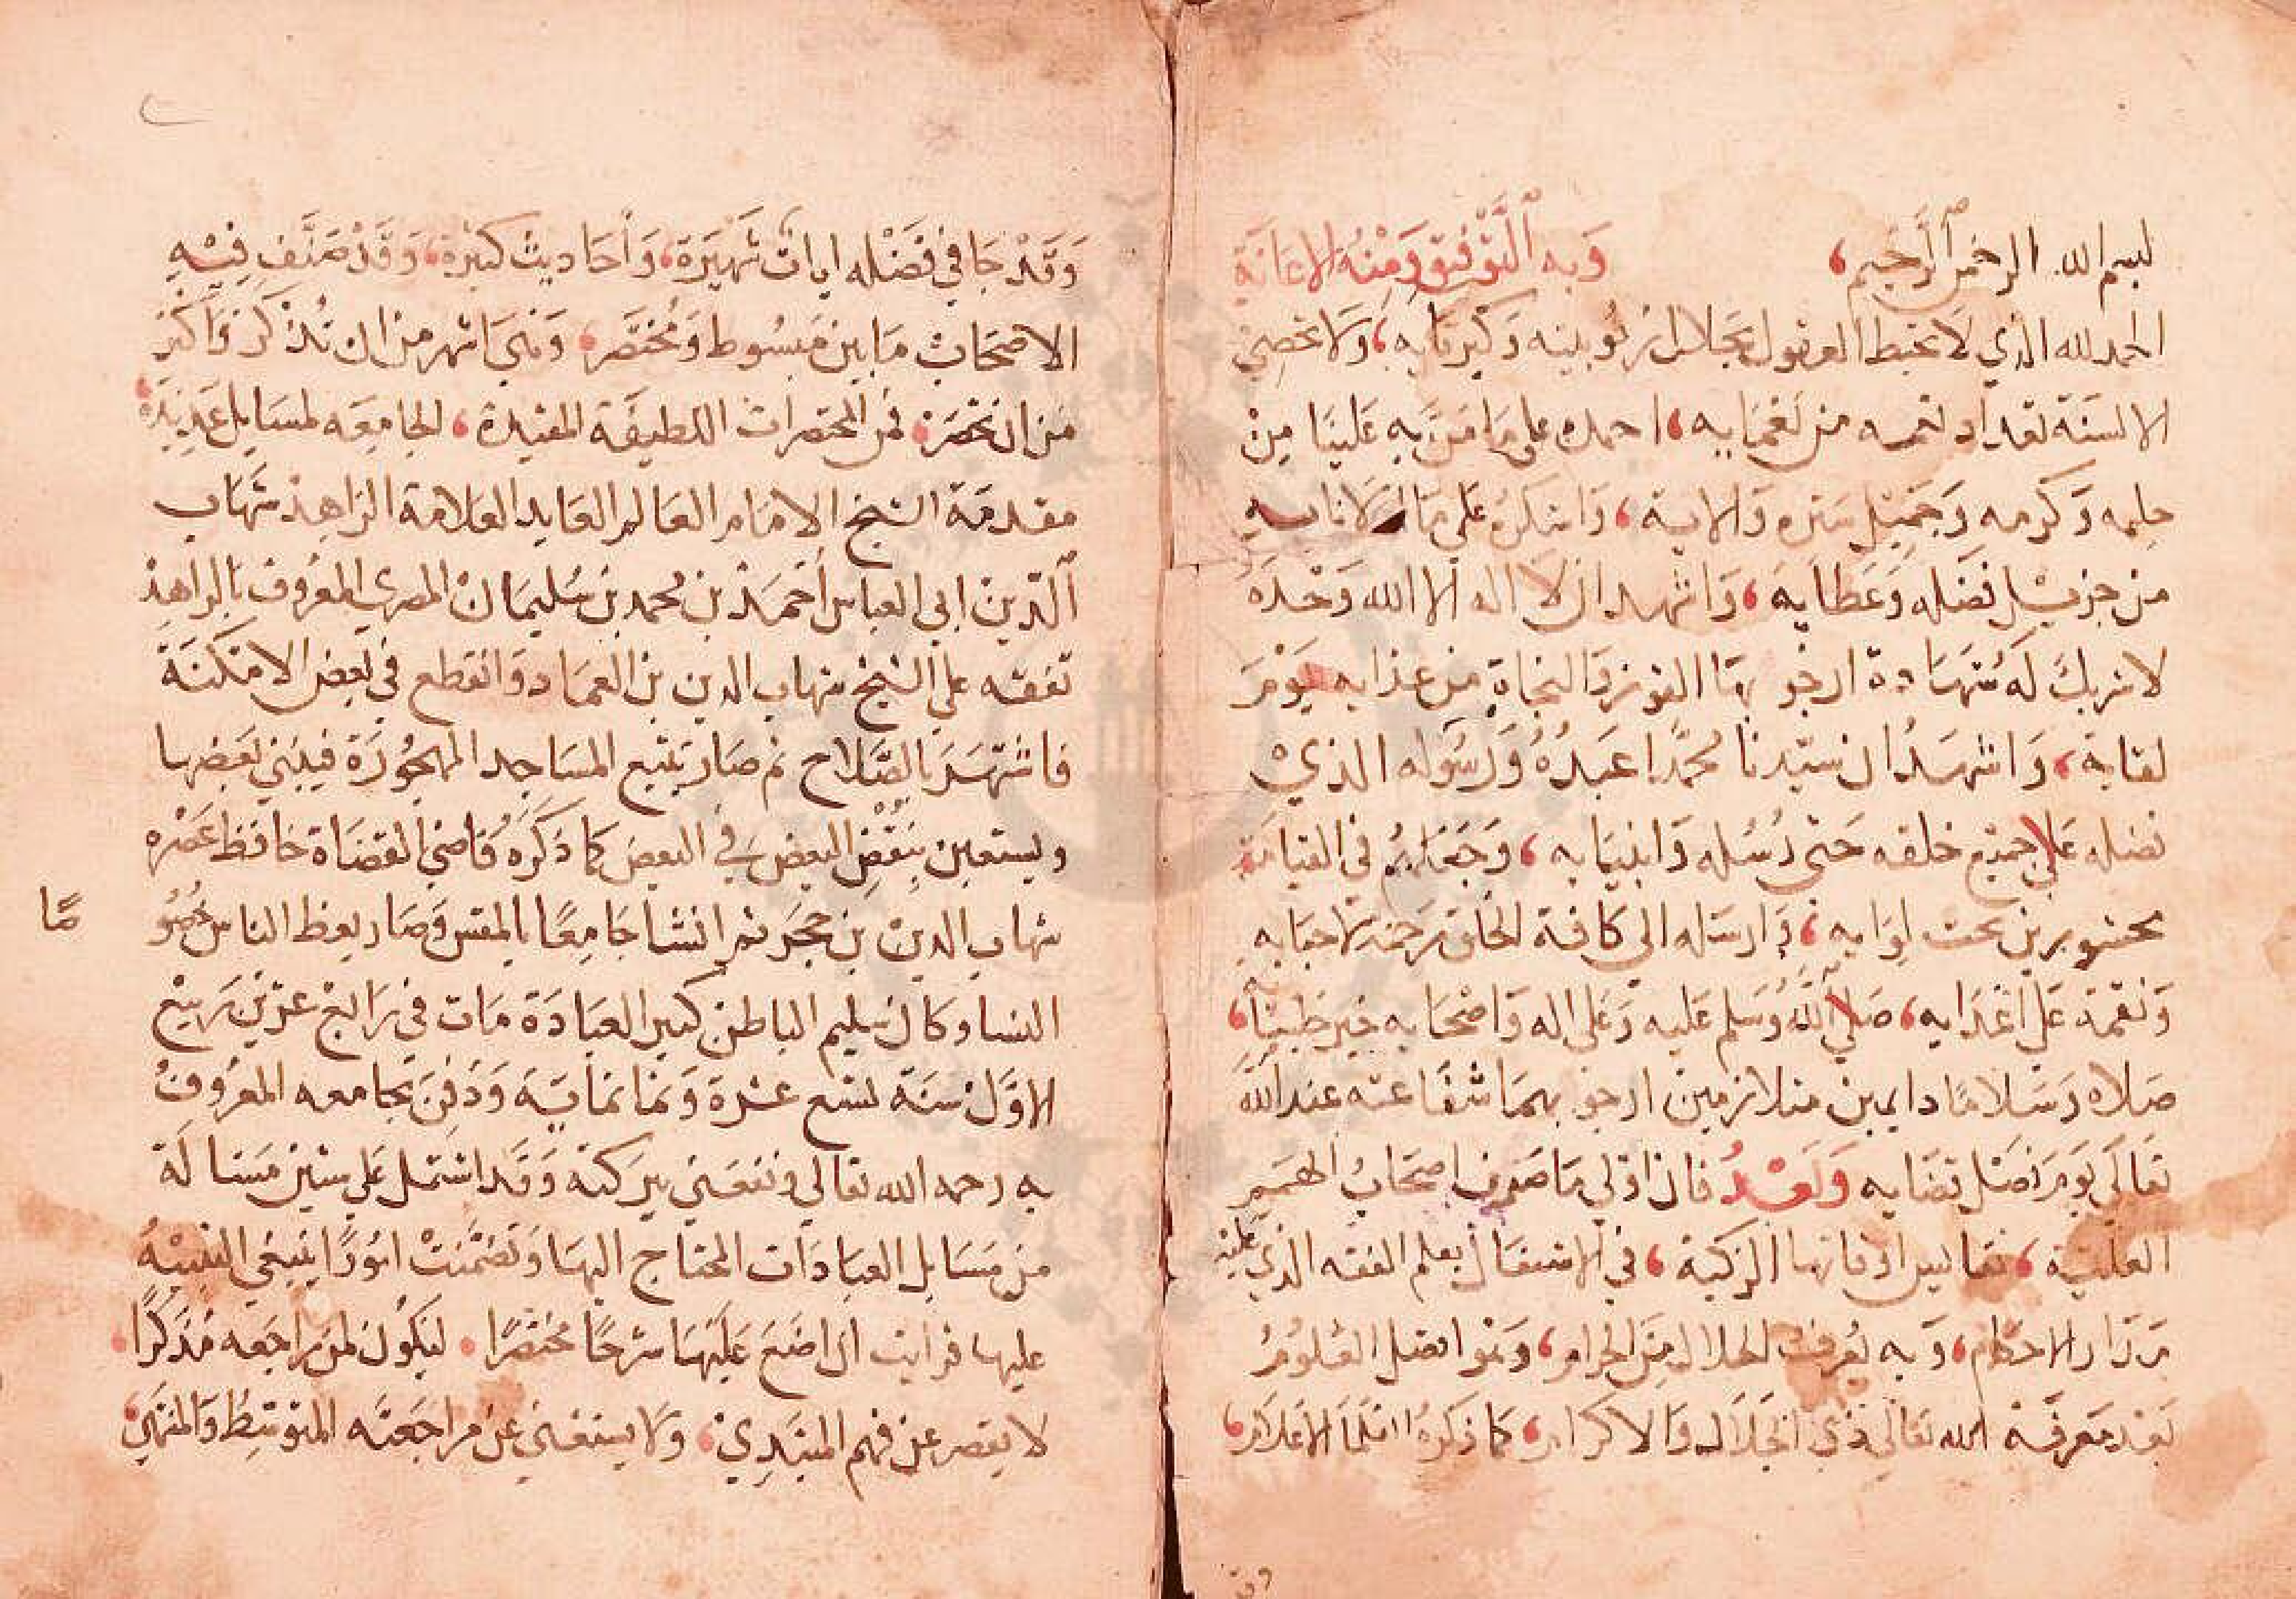 بسم الله الرحمن الرحيم، وبه التوفيق ومنه الاعانة
الحمد لله الذي لا تحيط العقول بجلال ربوبيته وكبريايه، ولا تحصي
الالسنة تعداد نعمه من نعمايه، احمده على ما من به علينا من
حلمه وكرمه وجميل ستره والايه، واشكره على ما
من جزيل فضله وعطايه، واشهد ان لا اله الا الله وحده
لا شريك له شهادة ارجو بها الفوز والنجاة من عذابه يوم
لقايه، واشهد ان سيدنا محمدا عبده ورسوله الذي
فضله على جميع خلقه حتى رسله وانبيايه، وجعلهم في القيامة
محشورين تحت لوايه، وارسله الى كافة الخلق رحمة لاحبابه
ونقمة على اعدايه، صلى الله وسلم عليه وعلى اله واصحابه
صلاه وسلاما دايمين متلازمين ارجو بهما شفاعته عند الله
تعالى يوم فصل قضايه وبعد فان اولى ما صرف اصحاب الهمم
العلية، نفايس اوقاتها الزكية، في الاشتغال بعلم الفقه الذي عليه
مدار الاحكام، وبه يعرف الحلال من الحرام، وهو افضل العلوم
بعد معرفة الله تعالى ذي الجلال والاكرام، كما ذكره العلما الاعلام،
وقد
وقد جا في فضله ايات شهيرة، واحاديث كثيرة، وقد صنف فيه
الاصحاب ما بين مبسوط ومختصر، وهي اشهر من ان تذكر واكثر
من ان تحصر، فمن المختصرات اللطيفة المفيدة، الجامعه لمسايل عديدة،
مقدمة الشيخ الامام العالم العابد العلامة الزاهد شهاب
الدين ابي العباس احمد بن محمد بن سليمان المصري المعروف بالزاهد
تفقه على الشيخ شهاب الدين بن العماد وانقطع في بعض الامكنة
فاشتهر بالصلاح ثم صار يتتبع المساجد المهجورة فيبني بعضها
ويستعين بنقض البعض في البعض كما ذكره قاضي القضاة حافظ عصره
شهاب الدين بن حجر ثم انشا جامعا بالمقس وصار يعظ الناس خصوصا
النسا وكان سليم الباطن كثير العبادة مات في رابع عشرين ربيع
الاول سنة تسع عشرة وثمانماية ودفن بجامعه المعروف
به رحمه الله تعالى ونفعني ببركته وقد اشتمل على ستين مسالة
من مسايل العبادات المحتاج اليها وتضمنت امورا ينبغي التنبيه
عليها فرايت ان اضع عليها شرحا مختصرا، ليكون لمن راجعه مذكرا،
لا يقصر عن فهم المبتدي، ولا يستغني عن مراجعته المتوسط والمنتهي